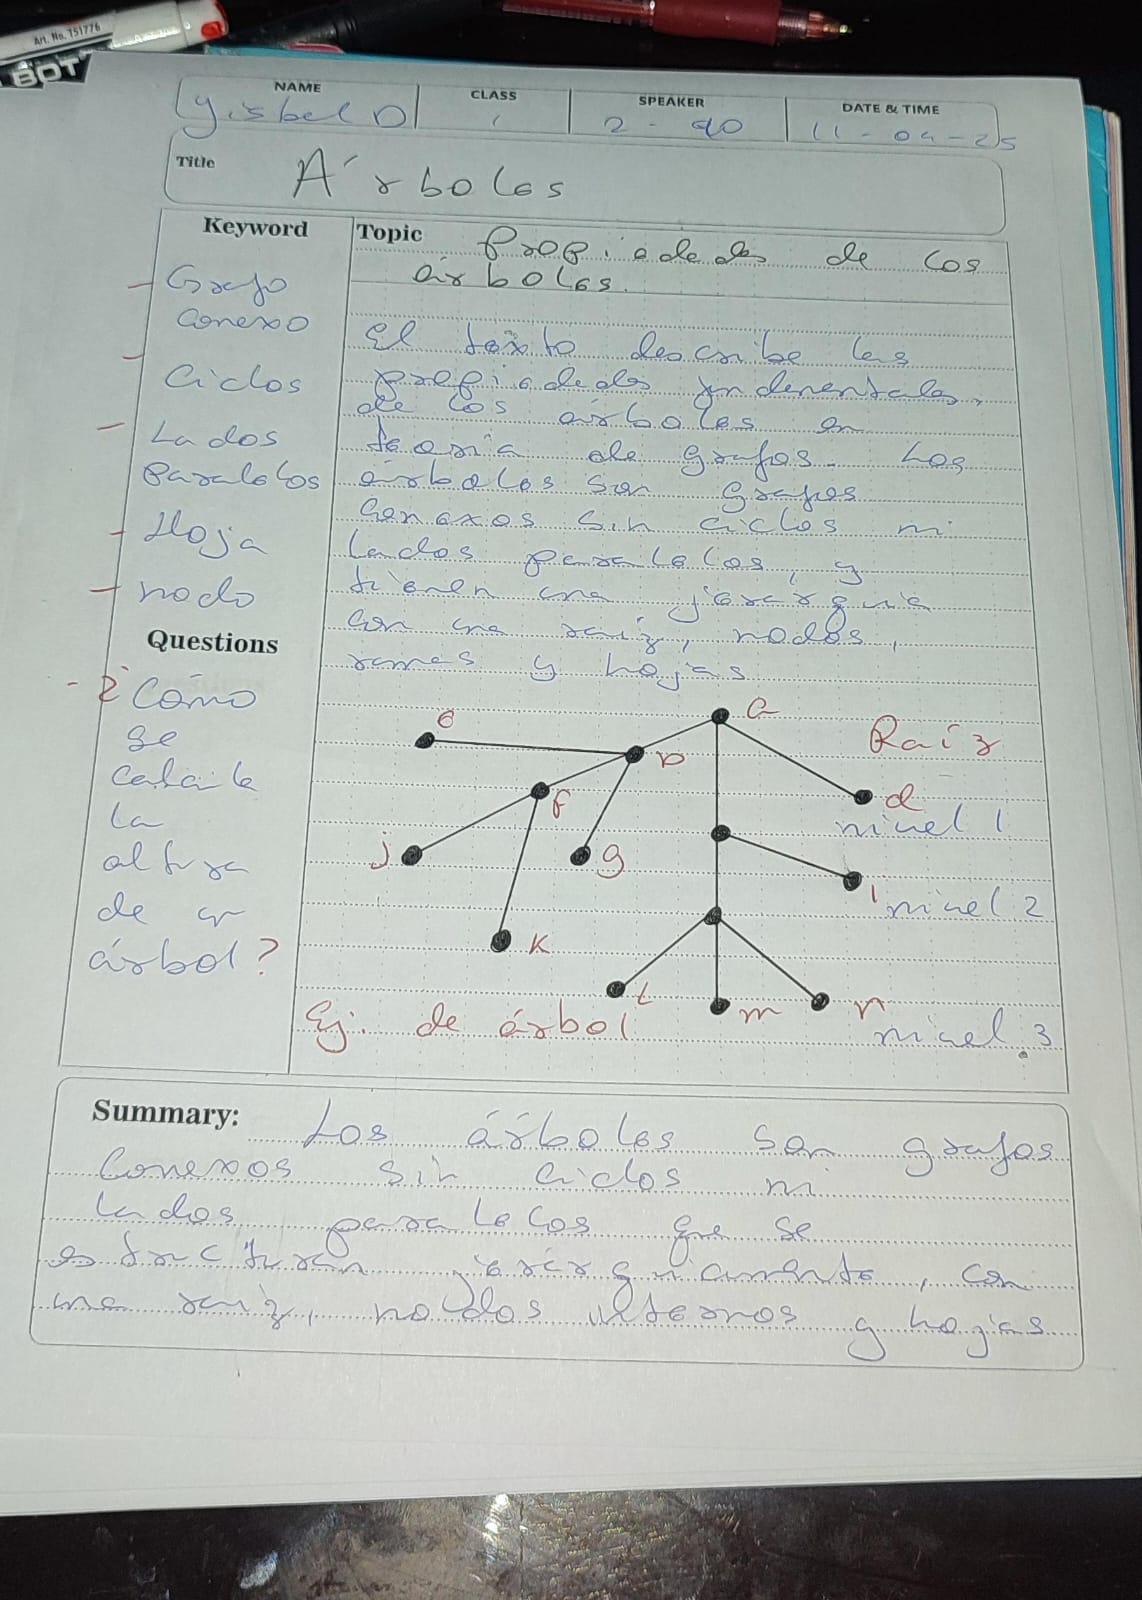 Art. No. 751776
BOT
NAME
CLASS
SPEAKER
DATE & TIME
Yisbel D
1
2-90
11-04-25
Title
Árboles
Keyword
- Grafo
conexo
- Ciclos
- Lados
Paralelos
- Hoja
- nodo
Questions
- ¿Cómo
se
calcula
la
altura
de un
árbol?
Topic
Propiedades de los
árboles.
El texto describe las
propiedades fundamentales
de los árboles en
teoría de grafos. Los
árboles son grafos
conexos sin ciclos ni
lados paralelos, y
tienen una jerarquía
con una raíz, nodos,
ramas y hojas
a
Raíz
e
b
d
nivel 1
f
j
g
i
nivel 2
k
l
m
n
nivel 3
Ej. de árbol
Summary:
Los árboles son grafos
Conexos sin ciclos ni
lados paralelos que se
estructuran jerárquicamente, con
una raíz, nodos internos y hojas